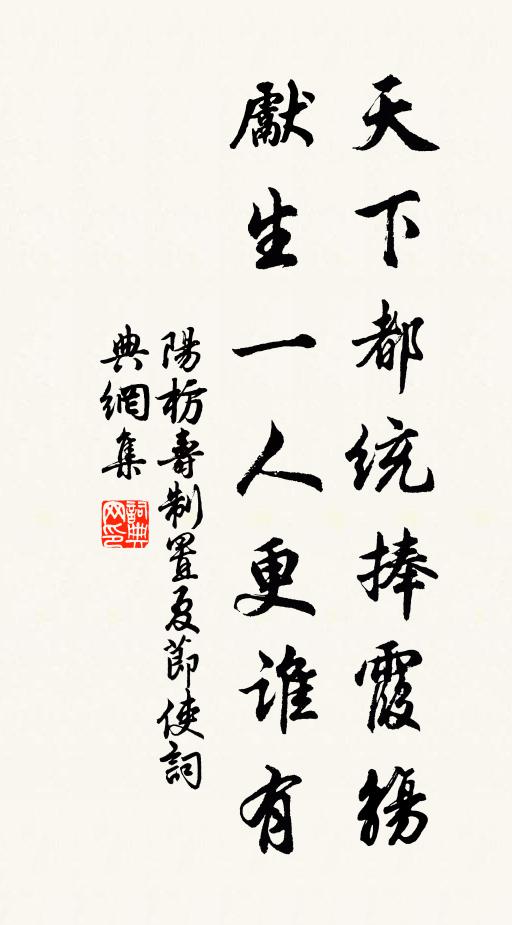 天下都統捧霞觴
獻生一人更誰有
陽枋壽制置夏節使詞
典網集
詞典
网印